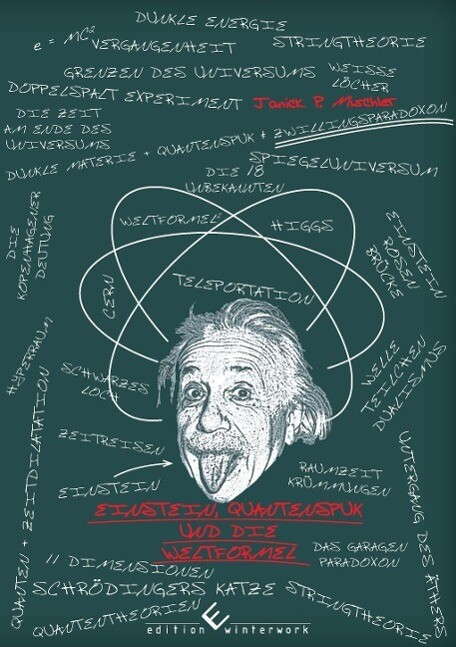 DUNKLE ENERGIE
e = MC²
VERGANGENHEIT
STRINGTHEORIE
GRENZEN DES UNIVERSUMS
WEISSE
LÖCHER
DOPPELSPALT EXPERIMENT
Janick P. Mischler
DIE ZEIT
AM ENDE DES
UNIVERSUMS
DUNKLE MATERIE + QUANTENSPUK + ZWILLINGSPARADOXON
SPIEGELUNIVERSUM
DIE 18
UNBEKANNTEN
DIE
KOPENHAGENER
DEUTUNG
WELTFORMEL²
HIGGS
EINSTEIN
ROSEN
BRÜCKE
CERN
TELEPORTATION
HYPERRAUM
SCHWARZES
LOCH
WELLE
TEILCHEN
DUALISMUS
ZEITREISEN
EINSTEIN
RAUMZEIT
KRÜMMUNGEN
QUANTEN + ZEITDILATATION
UNTERGANG DES ÄTHERS
EINSTEIN, QUANTENSPUK
UND DIE
WELTFORMEL
DAS GARAGEN
PARADOXON
11 DIMENSIONEN
SCHRÖDINGERS KATZE
STRINGTHEORIE
QUANTENTHEORIEN
edition winterwork